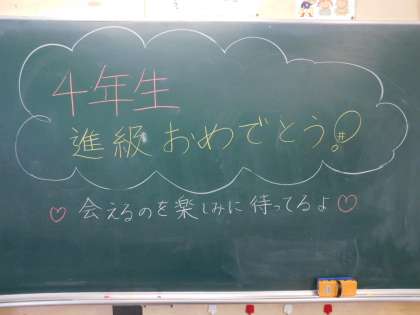 4年生
進級おめでとう!
会えるのを楽しみに待ってるよ